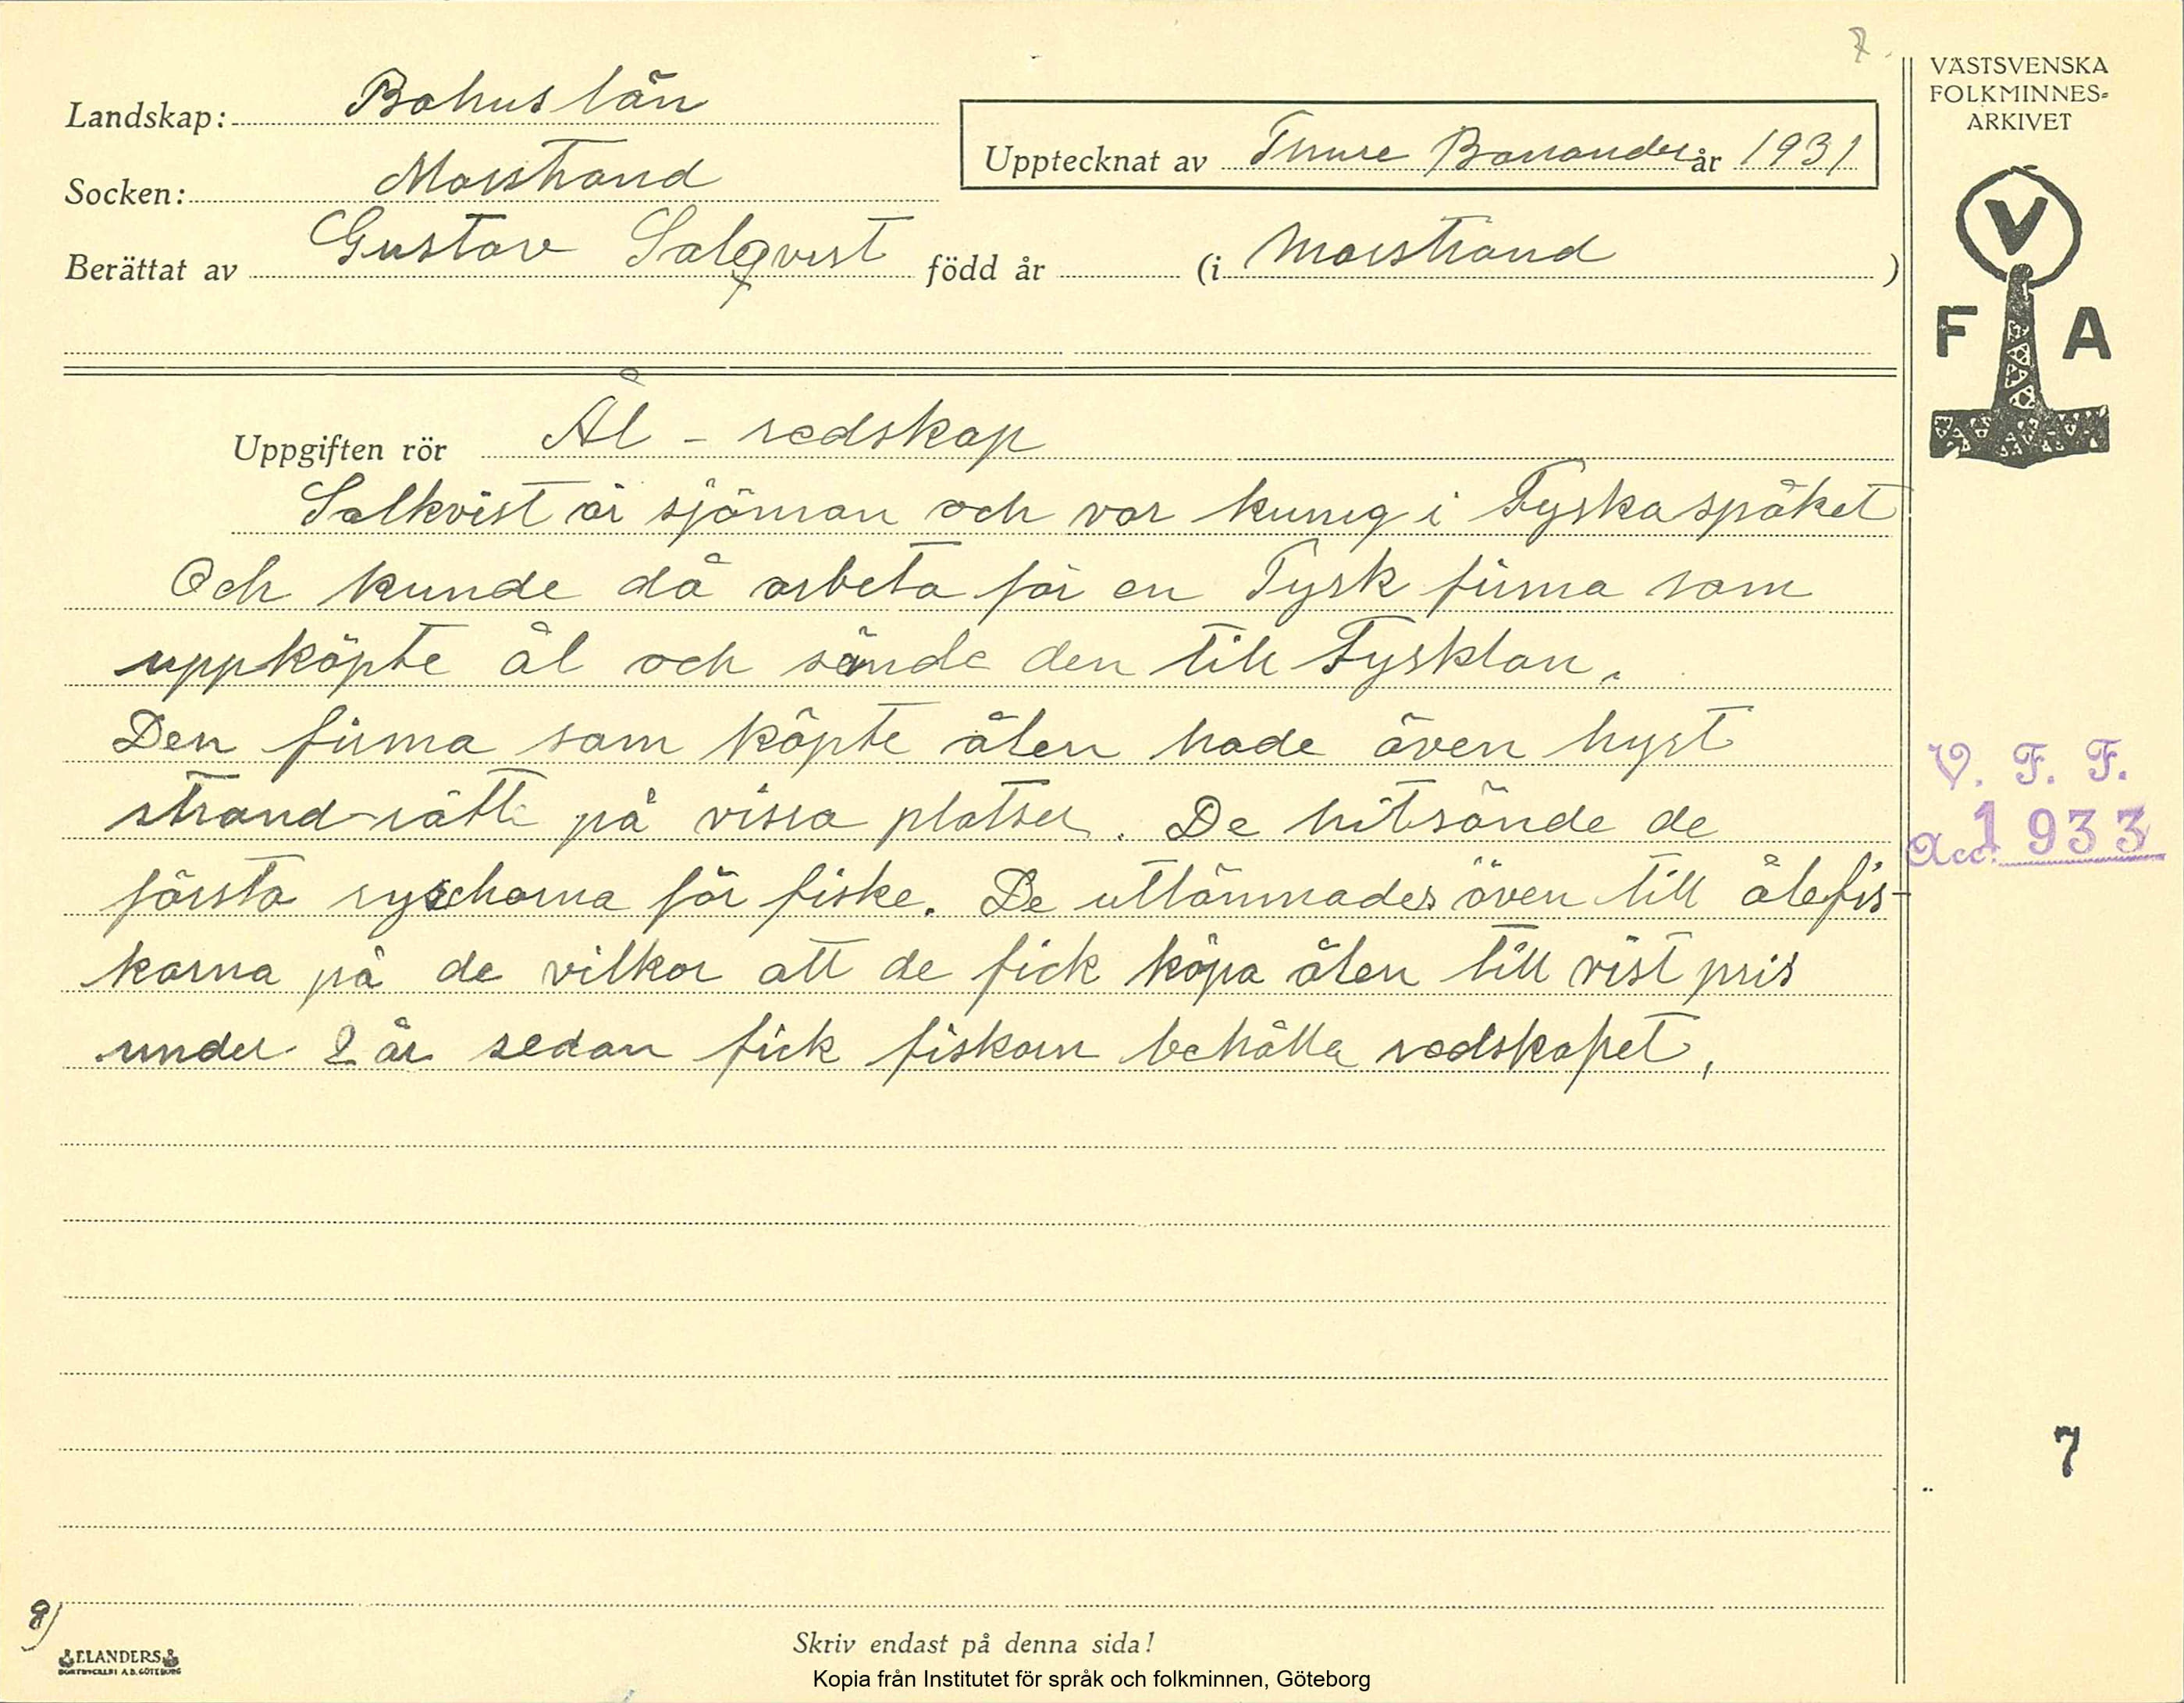 7
VÄSTSVENSKA
FOLKMINNES-
ARKIVET
Landskap: Bohuslän
Upptecknat av Thure Bonander år 1931
Socken: Marstrand
Berättat av Gustav Salqvist född år (i Marstrand )
V
F A
Uppgiften rör Ål - redskap
Salkvist är sjöman och var kunig i Tyska spåket
Och kunde då arbeta för en Tysk firma som
uppköpte ål och sände den till Tysklan.
Den firma som köpte ålen hade även hyst
strand-rätt på vissa platser. De hitsände de
första ryschorna för fiske. De utlämnades även till ålefis-
karna på de vilkor att de fick köpa ålen till vist pris
under 2 år sedan fick fiskarn behålla redskapet,
V. F. F.
Acc. 1933
7
8)
ELANDERS
BOKTRYCKERI A.B. GÖTEBORG
Skriv endast på denna sida!
Kopia från Institutet för språk och folkminnen, Göteborg